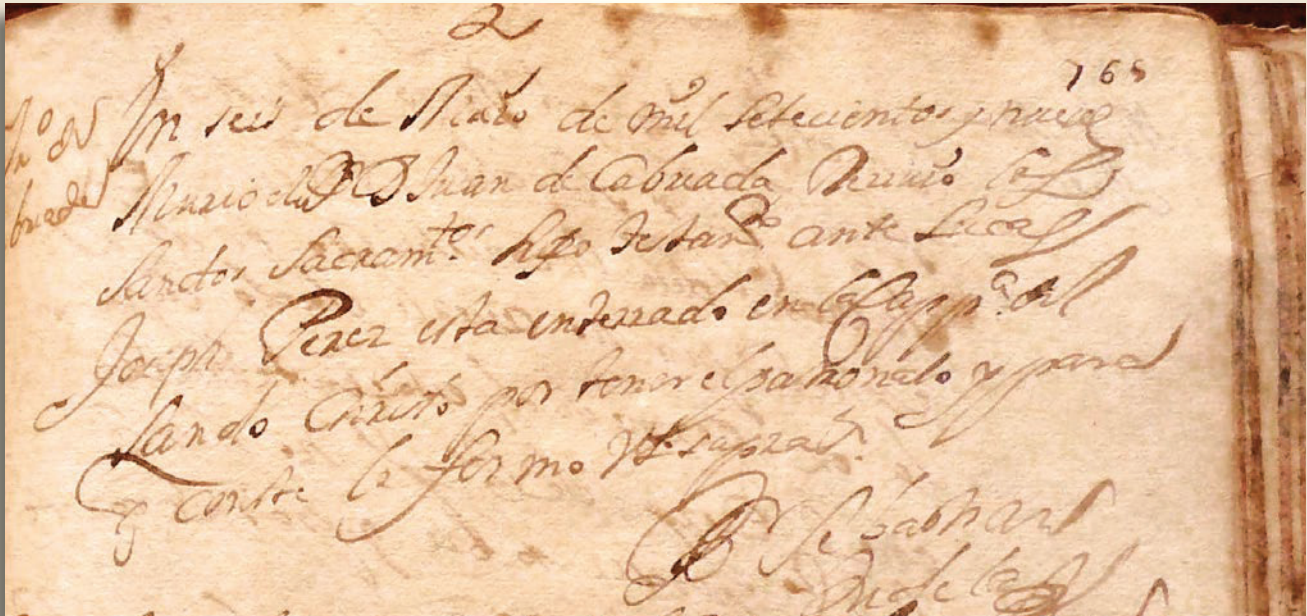 2
765
En seis de Maio de mil setecientos y nueve
Murio el D D Juan de Cabriada Reciuio los
Santos Sacramtos hizo testamto ante Lucas
Joseph Perez esta enterrado en la Cappa del
Santo Christo por tener el patronato y para
q conste lo firmo Vt supra
Sebastian